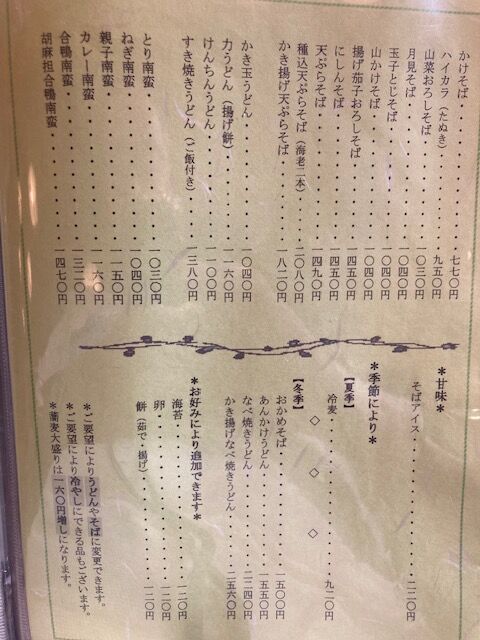 かけそば・・・・・・・・・・・・七七〇円
ハイカラ（たぬき）・・・・・・・九五〇円
山菜おろしそば・・・・・・・・一〇三〇円
月見そば・・・・・・・・・・・一〇四〇円
玉子とじそば・・・・・・・・・一〇四〇円
山かけそば・・・・・・・・・・一〇四〇円
揚げ茄子おろしそば・・・・・・一四五〇円
にしんそば・・・・・・・・・・一四五〇円
天ぷらそば・・・・・・・・・・一四九〇円
種込天ぷらそば（海老二本）・・二〇八〇円
かき揚げ天ぷらそば・・・・・・一八二〇円
かき玉うどん・・・・・・・・・一〇四〇円
力うどん（揚げ餅）・・・・・・一一六〇円
けんちんうどん・・・・・・・・一一〇〇円
すき焼きうどん（ご飯付き）・・一三八〇円
とり南蛮・・・・・・・・・・・一〇三〇円
ねぎ南蛮・・・・・・・・・・・一〇四〇円
親子南蛮・・・・・・・・・・・一一五〇円
カレー南蛮・・・・・・・・・・一一六〇円
合鴨南蛮・・・・・・・・・・・一三二〇円
胡麻担合鴨南蛮・・・・・・・・一四七〇円
＊甘味＊
そばアイス・・・・・・・・・・二二〇円
＊季節により＊
【夏季】
冷麦・・・・・・・・・・・・・九二〇円
◇　◇　◇
【冬季】
おかめそば・・・・・・・・・一五〇〇円
あんかけうどん・・・・・・・一五五〇円
なべ焼きうどん・・・・・・・二二四〇円
かき揚げなべ焼きうどん・・・二五六〇円
＊お好みにより追加できます＊
海苔・・・・・・・・・・・・・一二〇円
卵・・・・・・・・・・・・・・一二〇円
餅（茹で・揚げ）・・・・・・・一二〇円
＊ご要望によりうどんやそばに変更できます。
＊ご要望により冷やしにできる品もございます。
＊蕎麦大盛りは一六〇円増しになります。